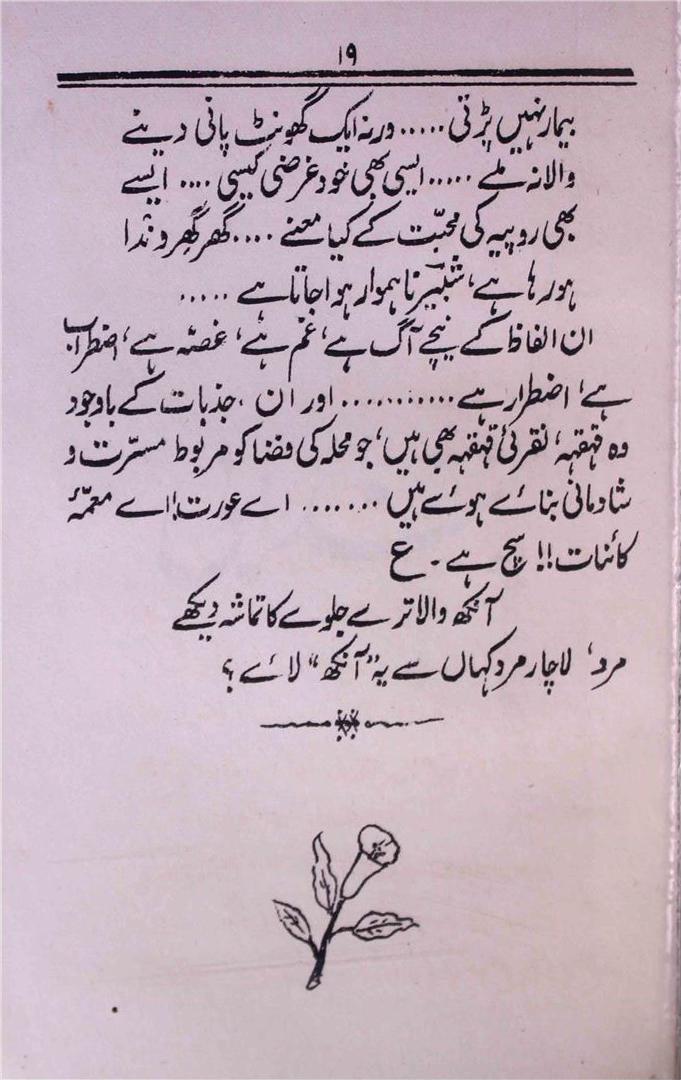 ۱۹
بیمار نہیں پڑتی ..... ورنہ ایک گھونٹ پانی دینے
والا نہ ملے ..... ایسی بھی خود غرضی کیسی .... ایسے
بھی روپیہ کی محبّت کے کیا معنے .... گھر گھروندا
ہو رہا ہے، شبیرؔ ناہموار ہوا جاتا ہے .....
ان الفاظ کے نیچے آگ ہے، غم ہے، غصّہ ہے، اضطراب
ہے، اضطرار ہے ........... اور ان جذبات کے باوجود
وہ قہقہہ، نقرئی قہقہہ بھی ہیں، جو محلہ کی فضا کو مربوط مسرّت و
شادمانی بنائے ہوئے ہیں ....... اے عورت! اے معمّۂ
کائنات!! سچ ہے۔ ع
آنکھ والا ترے جلوے کا تماشہ دیکھے
مرد، لاچار مرد کہاں سے یہ "آنکھ" لائے؟